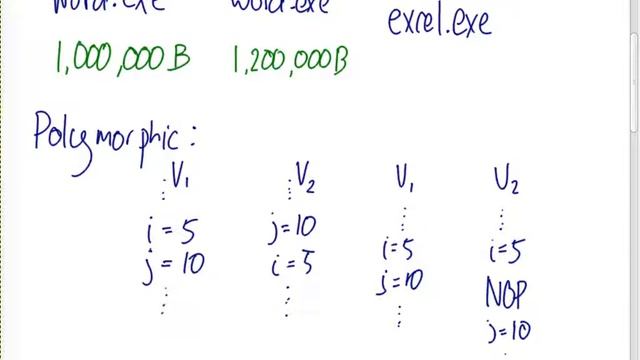 word.exe word.exe excel.exe
1,000,000B 1,200,000B
Polymorphic:
V1 V2 V1 V2
i=5 j=10 i=5 i=5
j=10 i=5 j=10 NOP
j=10